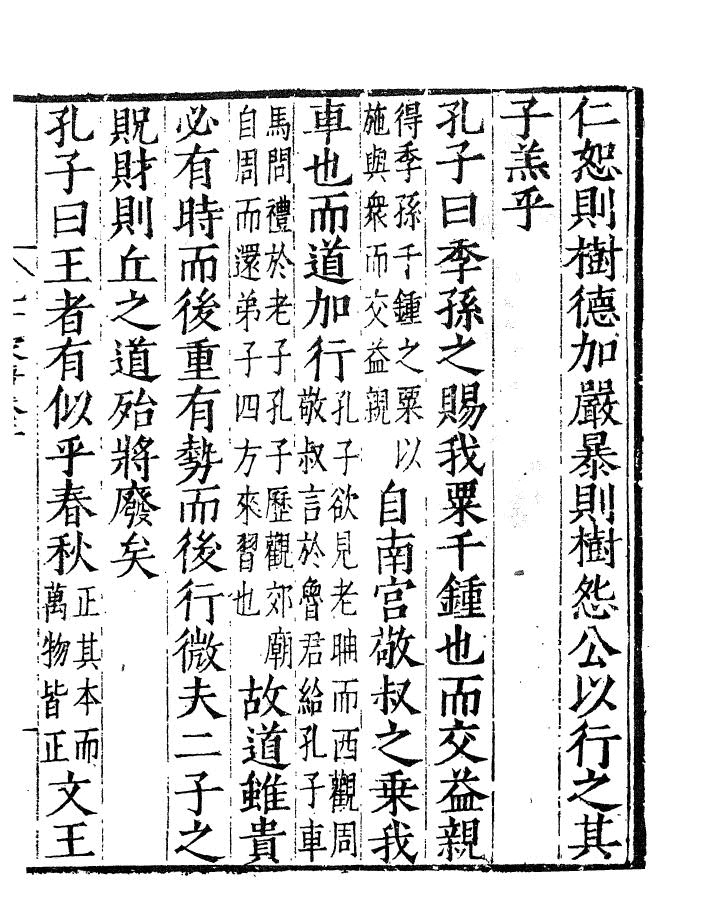 仁恕則樹德加嚴暴則樹怨公以行之其
子羔乎
孔子曰季孫之賜我粟千鍾也而交益親
得季孫千鍾之粟以
施與衆而交益親
自南宫敬叔之乗我
車也而道加行
孔子欲見老聃而西觀周
敬叔言於魯君給孔子車
馬問禮於老子孔子歷觀郊廟
自周而還弟子四方來習也
故道雖貴
必有時而後重有勢而後行微夫二子之
貺財則丘之道殆將廢矣
孔子曰王者有似乎春秋
正其本而
萬物皆正
文王